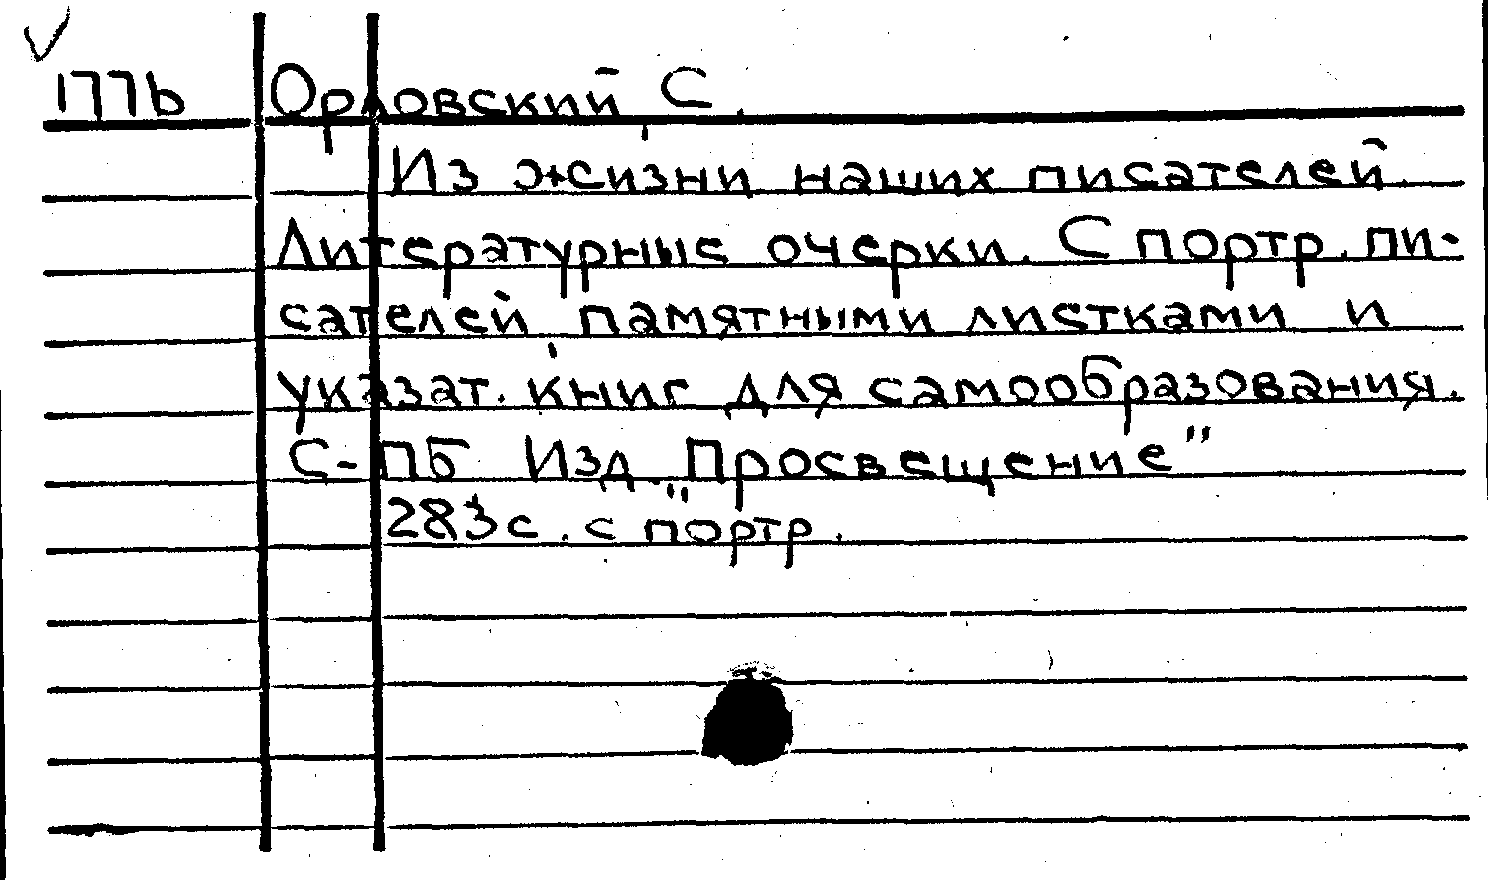 1776 Орловский С.
Из жизни наших писателей.
Литературные очерки. С портр. пи-
сателей, памятными листками и
указат. книг для самообразования.
С-ПБ Изд. "Просвещение"
283 с. с портр.